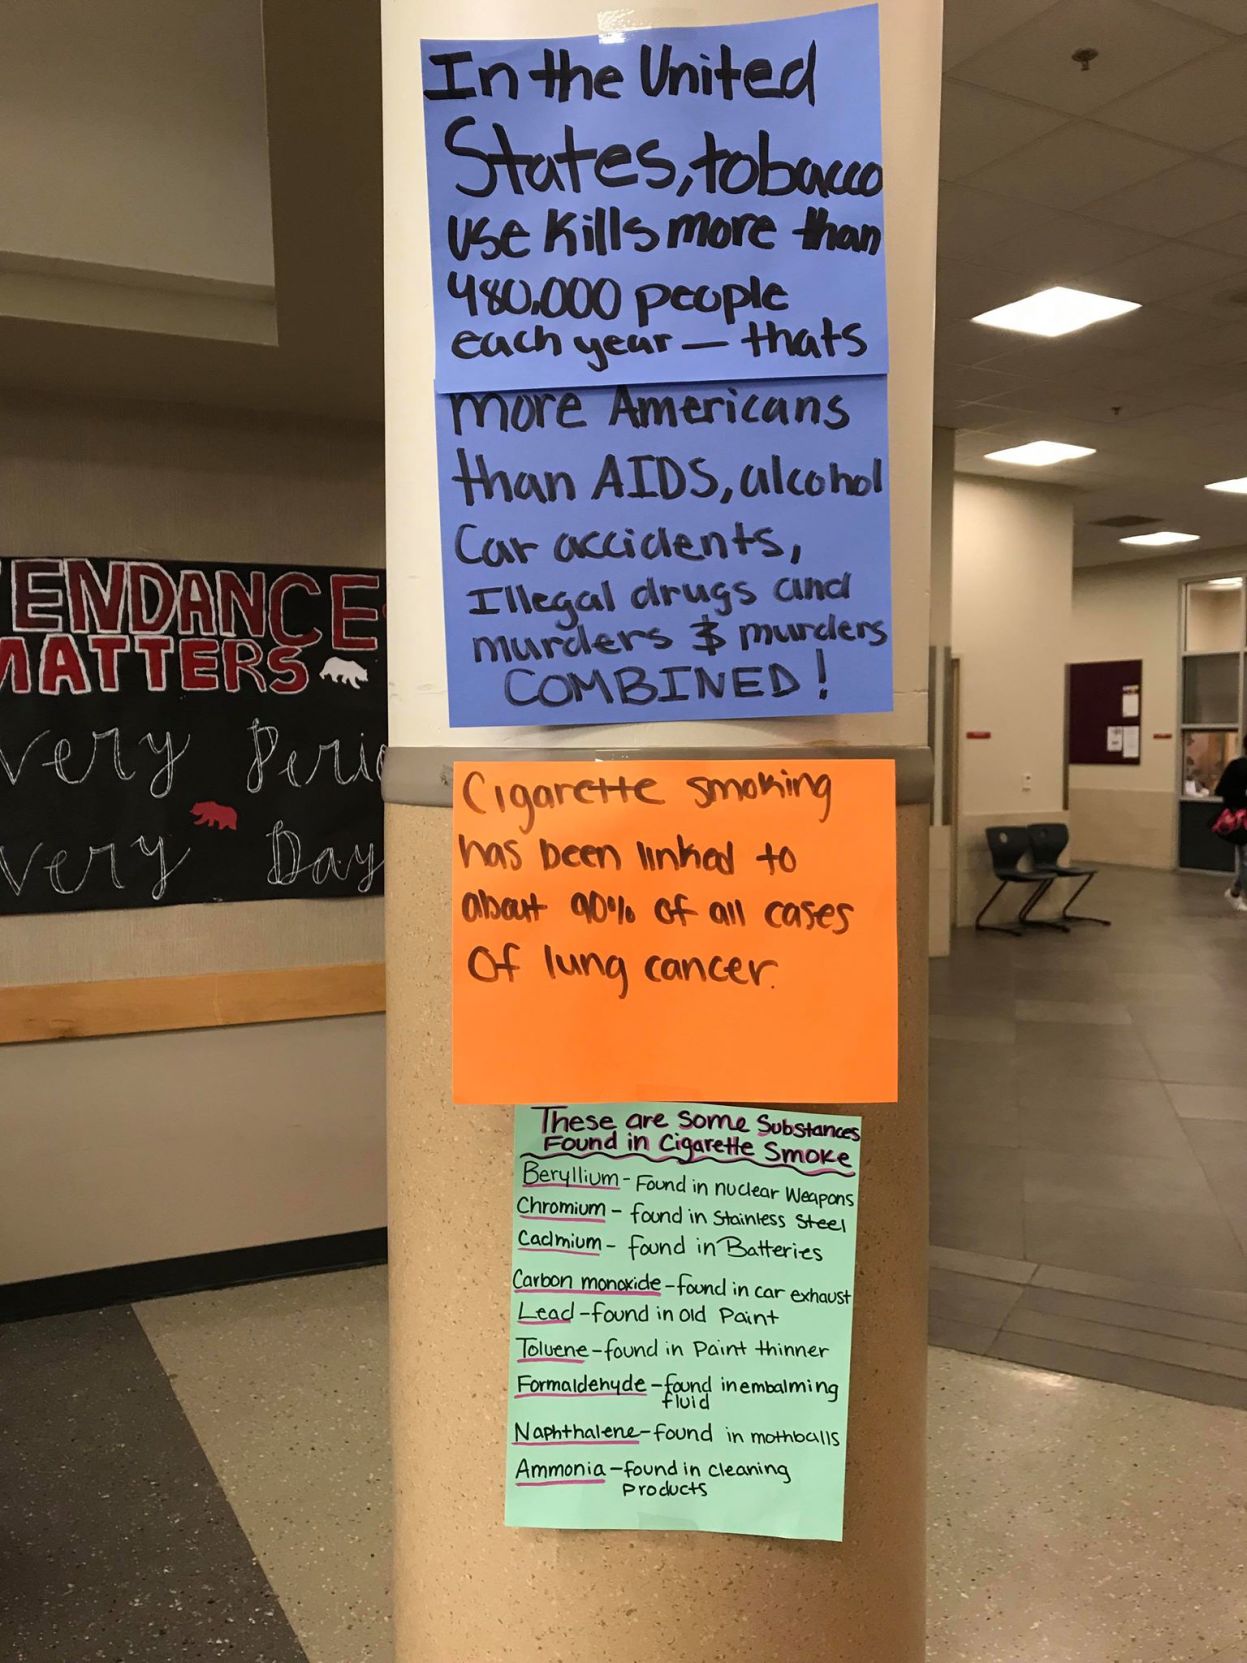 In the United
States, tobacco
use kills more than
480,000 people
each year — thats
more Americans
than AIDS, alcohol
Car accidents,
Illegal drugs and
murders & murders
COMBINED!
Cigarette smoking
has been linked to
about 90% of all cases
of lung cancer.
These are some Substances
Found in Cigarette Smoke
Beryllium - Found in nuclear Weapons
Chromium - found in Stainless Steel
Cadmium - found in Batteries
Carbon monoxide - found in car exhaust
Lead - found in old Paint
Toluene - found in Paint thinner
Formaldehyde - found in embalming
fluid
Naphthalene - found in mothballs
Ammonia - found in cleaning
Products
TENDANCE
MATTERS
very Perio
very Day